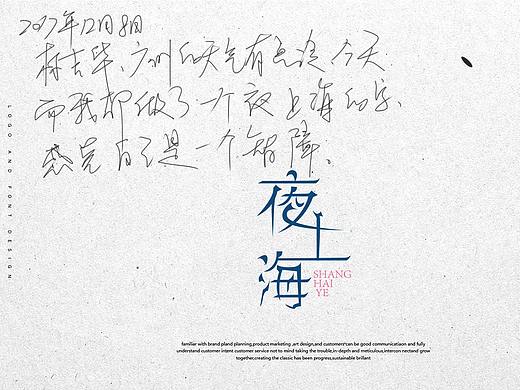 2017年12月8日
林吉华、广州的天气有点冷 今天
而我却做了一个夜上海的字、
感觉自己是一个智障。
夜上海
SHANG
HAI
YE
LOGO AND FONT DESIGN
familiar with brand pland planning,product marketing ,art design,and customers"can be good communicatiaon and fully
understand customer intent customer service not to mind taking the trouble,in-depth and meticulous,intercon nectand grow
together,creating the classic has been progress,sustainable brillant